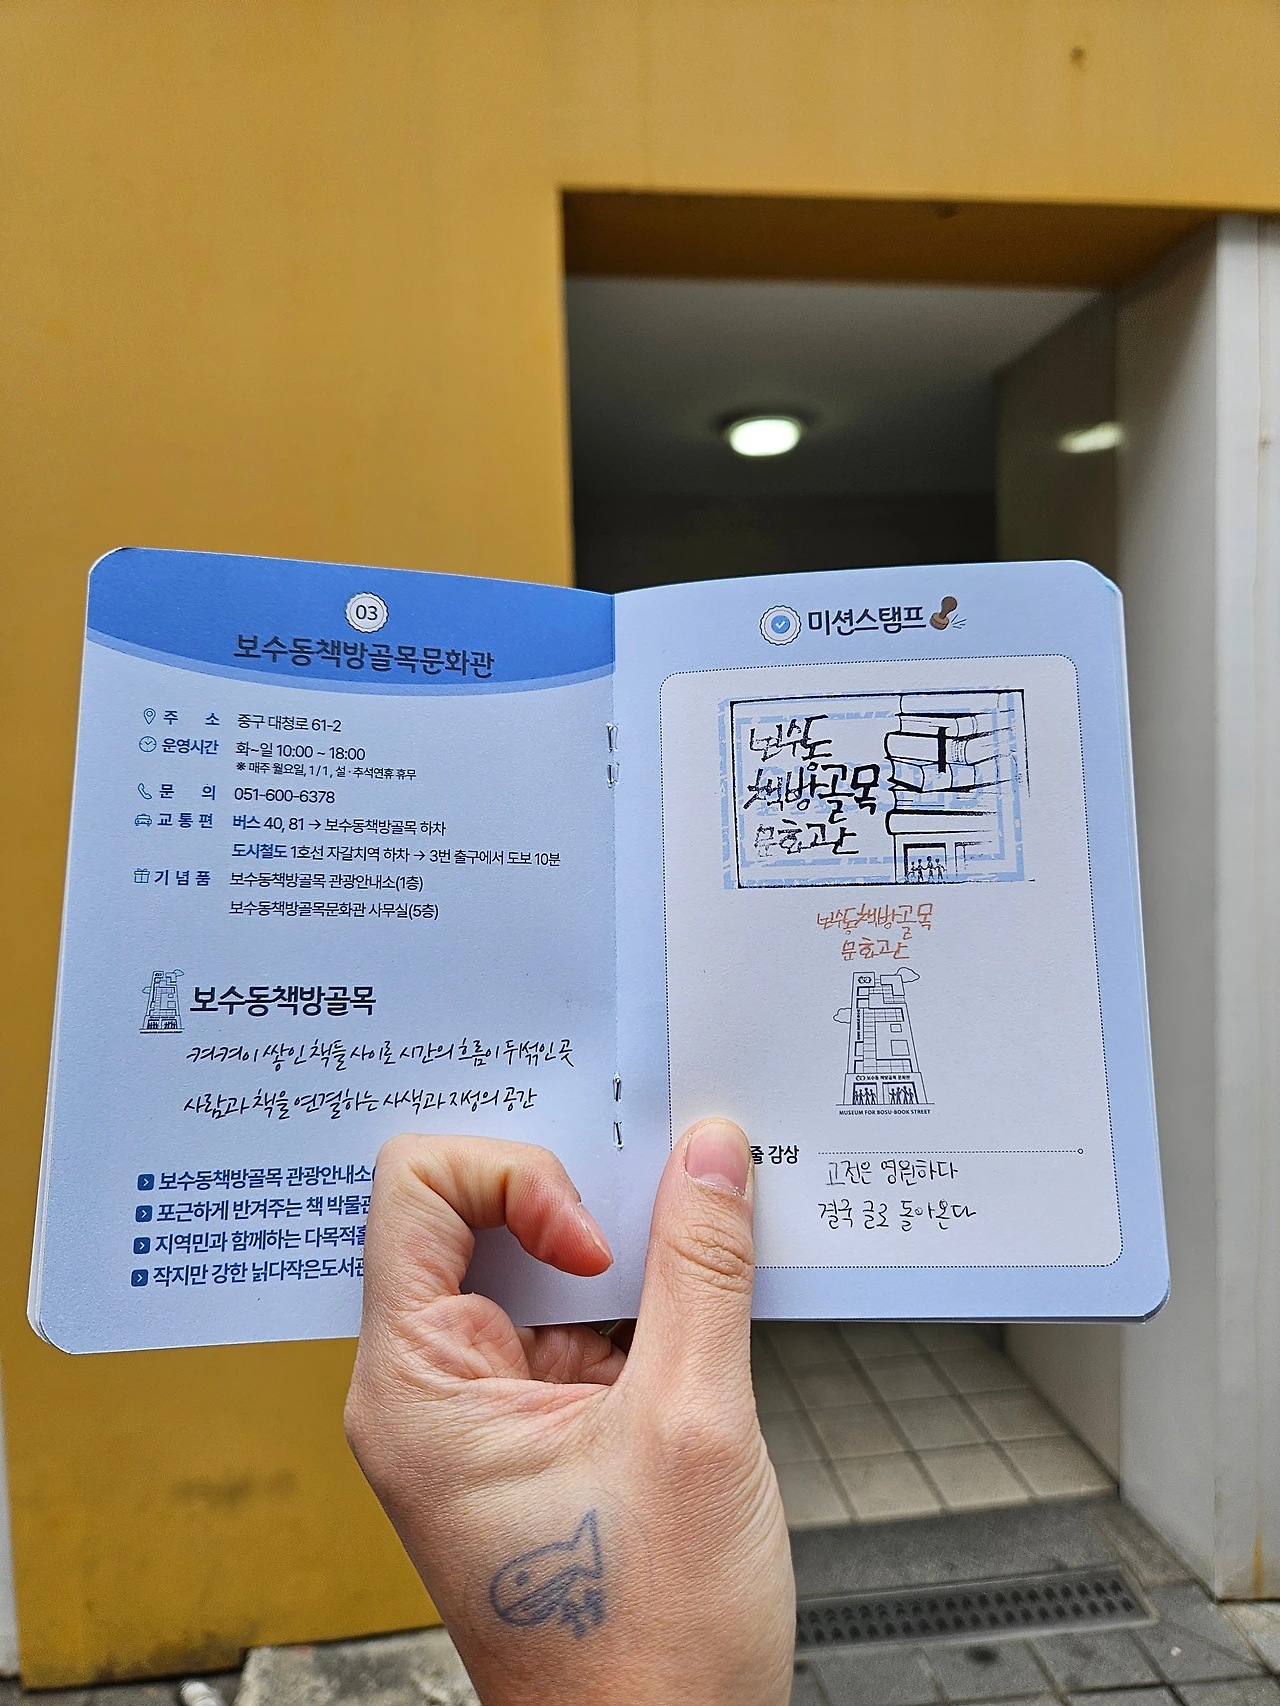 03
보수동책방골목문화관
주 소 중구 대청로 61-2
운영시간 화~일 10:00 ~ 18:00
※ 매주 월요일, 1/1, 설·추석연휴 휴무
문 의 051-600-6378
교통편 버스 40, 81 → 보수동책방골목 하차
도시철도 1호선 자갈치역 하차 → 3번 출구에서 도보 10분
기념품 보수동책방골목 관광안내소(1층)
보수동책방골목문화관 사무실(5층)
보수동책방골목
켜켜이 쌓인 책들 사이로 시간의 흐름이 뒤섞인 곳
사람과 책을 연결하는 사색과 지성의 공간
보수동책방골목 관광안내소(
포근하게 반겨주는 책 박물관
지역민과 함께하는 다목적홀
작지만 강한 낡다작은도서관
미션스탬프
보수동
책방골목
문화관
보수동책방골목
문화관
보수동 책방골목 문화관
MUSEUM FOR BOSU-BOOK STREET
줄 감상
고전은 영원하다
결국 글로 돌아온다